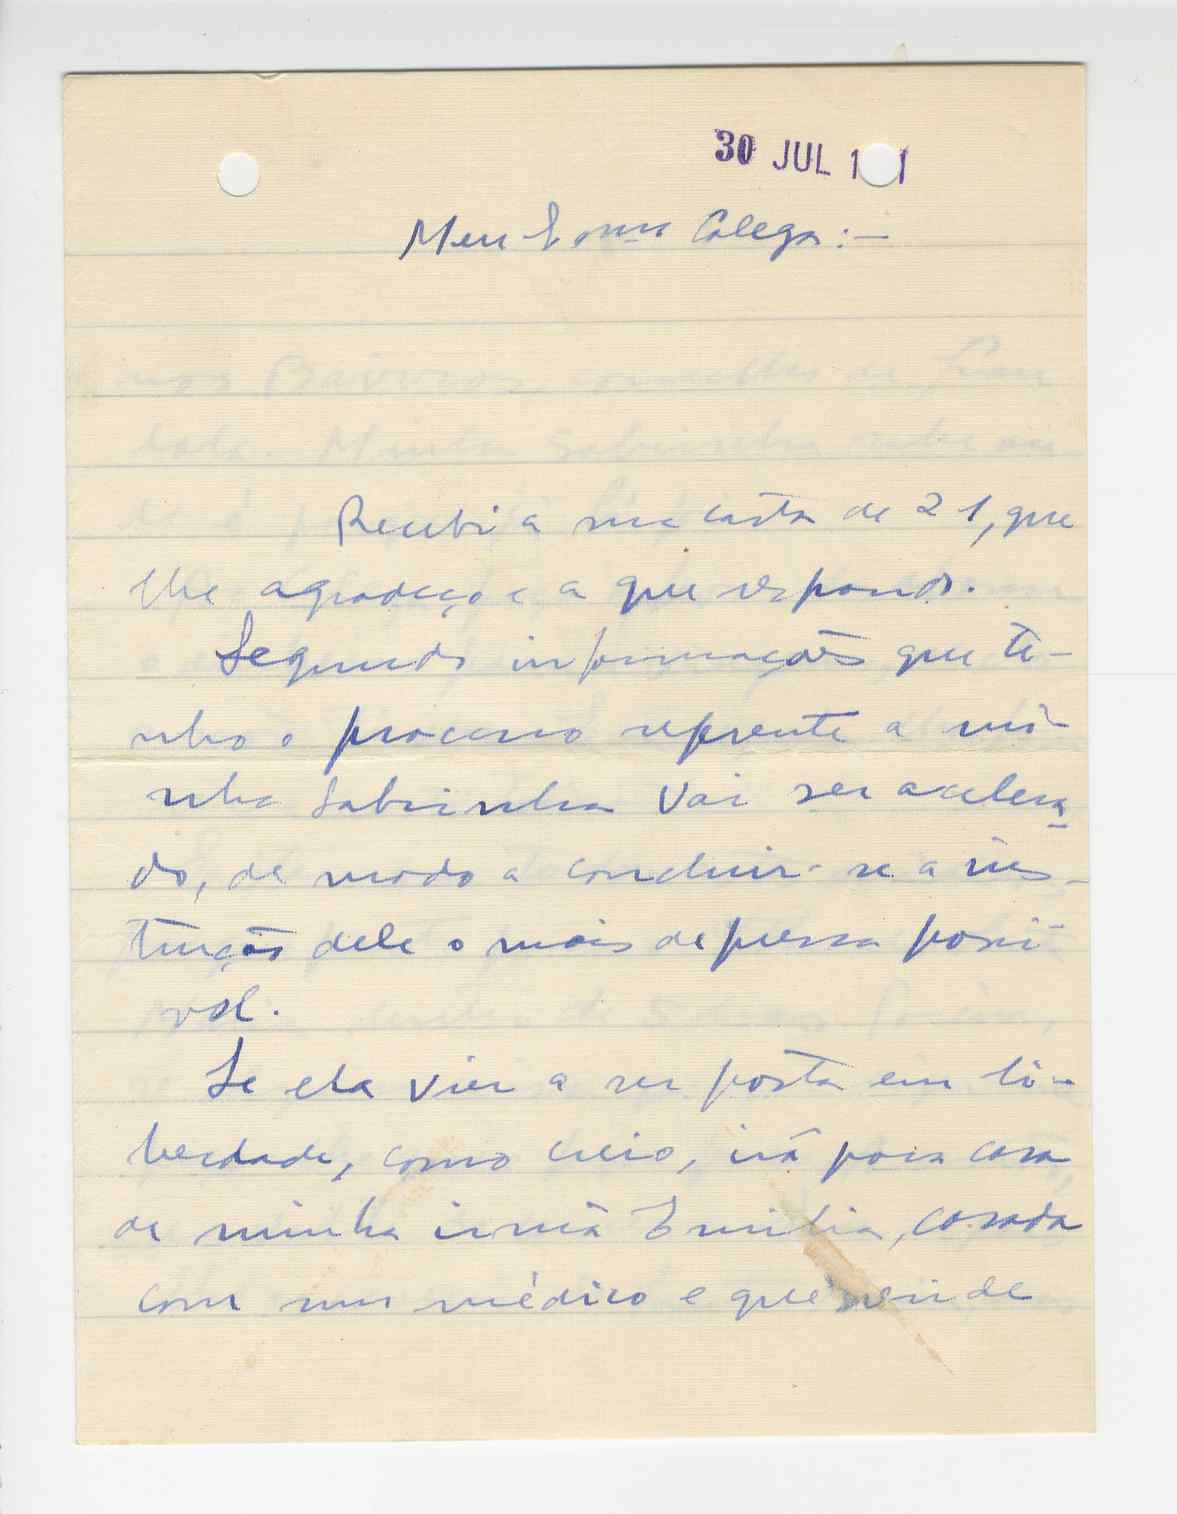 30 JUL 1 1
Meu Exmo Colega:-
Recebi a sua carta de 21, que
lhe agradeço e a que respondo.
Segundo informações que te-
nho o processo referente a mi-
nha sobrinha vai ser acelera-
do, de modo a concluir-se a ins-
trução dele o mais depressa possi-
vel.
Se ela vier a ser posta em li-
berdade, como creio, irá para casa
de minha irmã Emilia, casada
com um médico e que reside